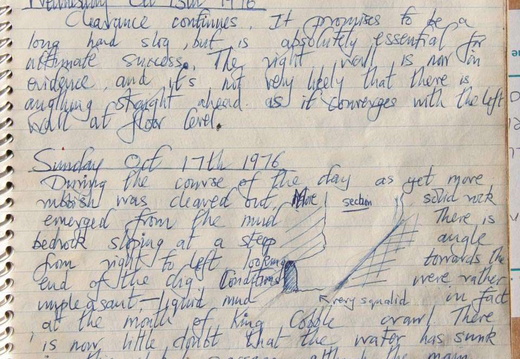 Wednesday Oct 13th 1976
Clearance continues. It promises to be a
long hard slog, but is absolutely essential for
ultimate success. The right wall is now in
evidence, and it's not very likely that there is
anything straight ahead as it converges with the left
wall at floor level.
Sunday Oct 17th 1976
During the course of the day as yet more
rubbish was cleared out, More section solid rock
emerged from the mud There is
bedrock sloping at a steep angle
from right to left looking towards the
end of the dig. Conditions were rather
unpleasant - liquid mud very squalid in fact
at the mouth of King Cobble crawl There
is now little doubt that the water has sunk